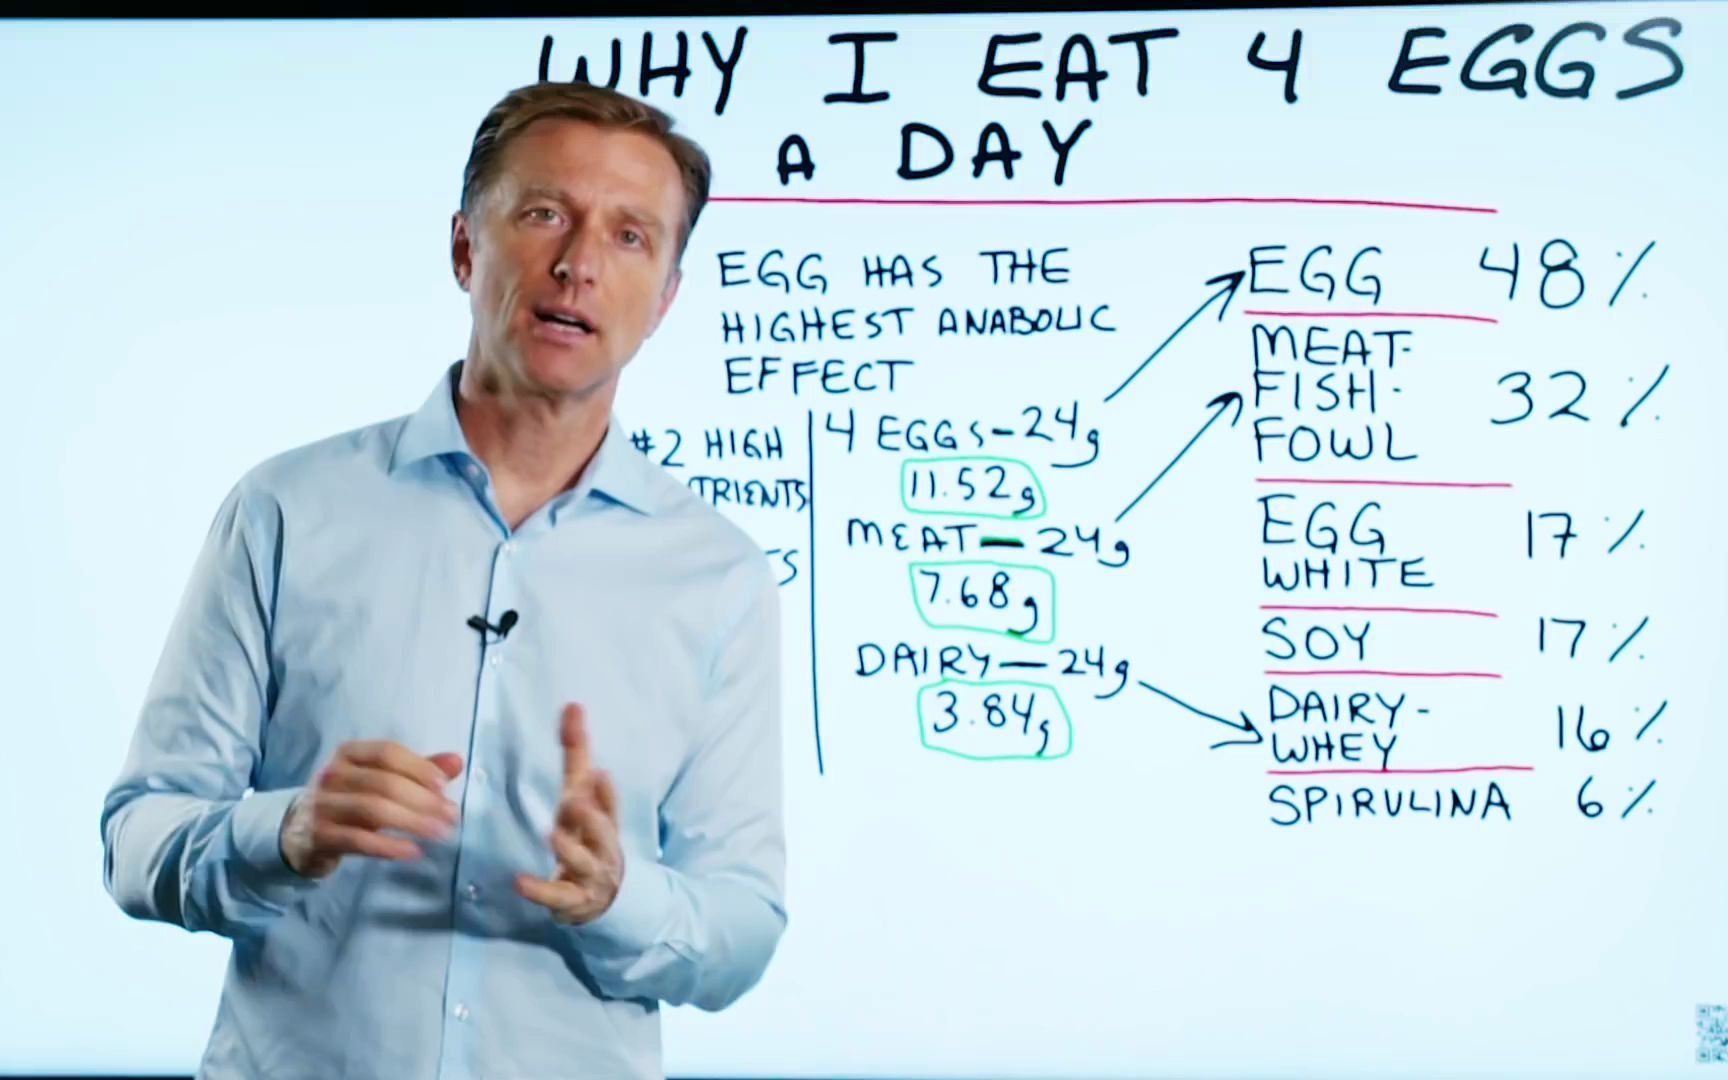 WHY I EAT 4 EGGS
A DAY
EGG HAS THE
HIGHEST ANABOLIC
EFFECT
#2 HIGH
TRIENTS
S
4 EGGS-24g
11.52g
MEAT-24g
7.68g
DAIRY-24g
3.84g
EGG 48%
MEAT-
FISH- 32%
FOWL
EGG 17%
WHITE
SOY 17%
DAIRY- 16%
WHEY
SPIRULINA 6%